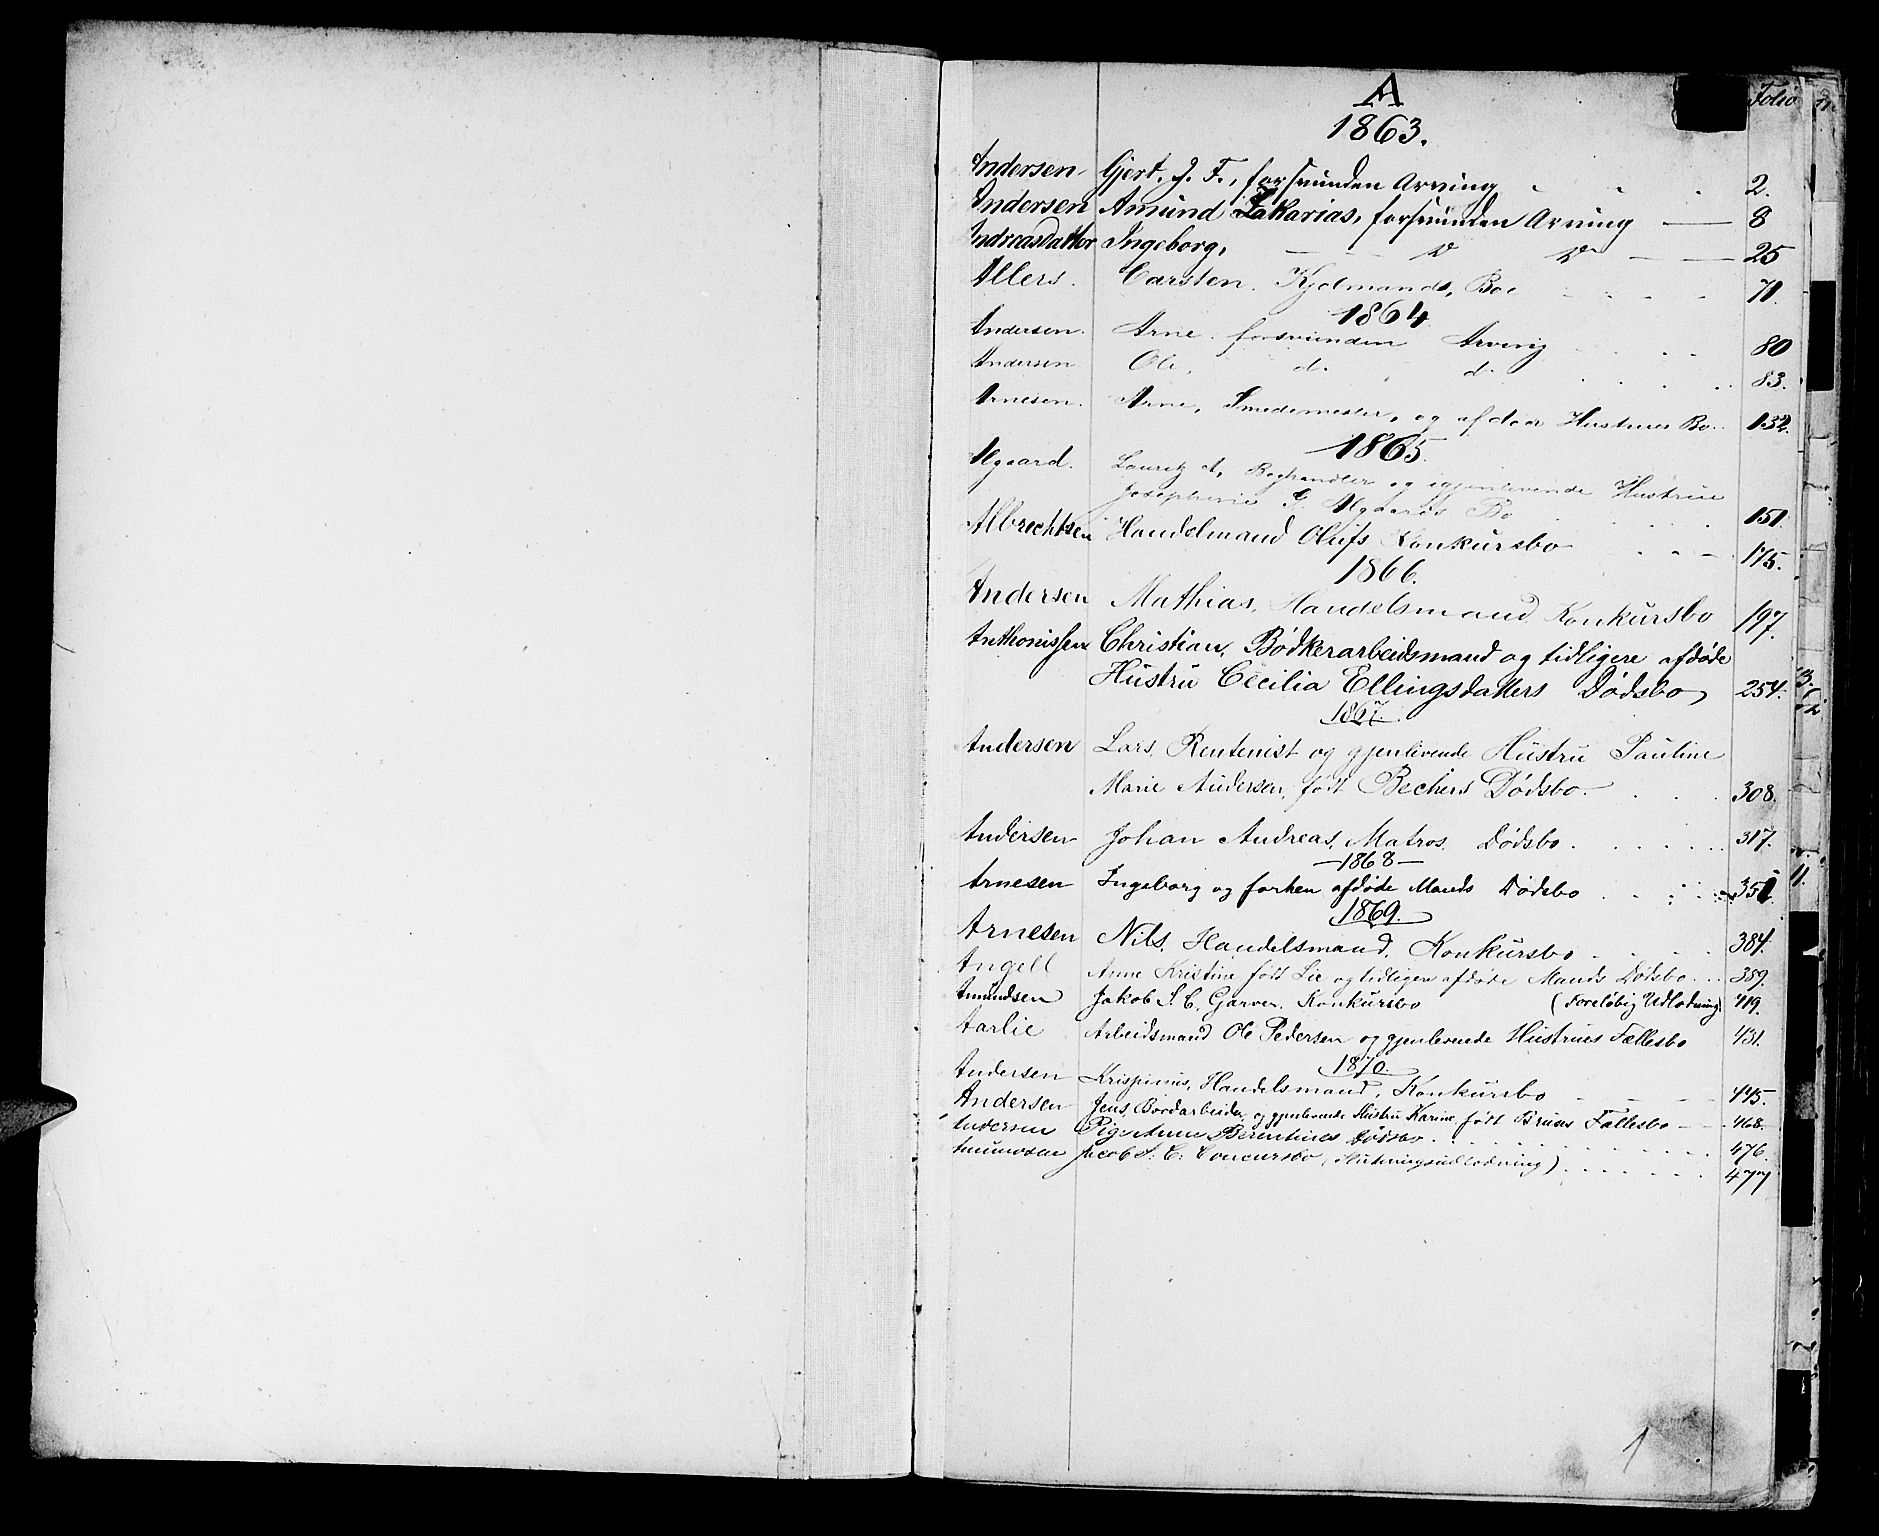 A
Folio
1863.
Andersen Gjert, J. F., forsvunden Arving 2.
Andersen Amund Zakarias, forsvunden Arving 8
Andreasdatter Ingeborg, 25
Allers. Carsten, Kjølmands, Boe 71.
1864
Andersen. Arne. forsvunden Arving 80
Andersen Ole, d. d. 83.
Arnesen. Arne, Smedemester, og afdøde Hustrues Bo. 132.
1865
Algaard. Lauritz A, Boghandler og igjenlevende Hustrue
Josephine G. Algaards Bo 151.
Albrechtsen Handelmand Olufs Konkursbo 175.
1866.
Andersen Mathias, Handelsmand Konkursbo 197.
Anthonissen Christian, Bødkerarbeidsmand og tidligere afdøde
Hustru Cecilia Ellingsdatters Dødsbo 254.
1867.
Andersen Lars, Rentenist og gjenlevende Hustru Pauline
Marie Andersen, født Bechers Dødsbo. 308.
Andersen Johan Andreas, Matros. Dødsbo. 317.
1868
Arnesen Ingeborg og forhen afdøde Mands Dødsbo 351
1869.
Arnesen Nils, Handelsmand, Konkursbo 384.
Angell Anne Kristine født Lie og tidligen afdøde Mands Dødsbo 389.
Amundsen Jakob S. C. Garver, Konkursbo (Foreløbig Udlodning) 419.
Aarlie Arbeidsmand Ole Pedersen og gjenlevende Hustrues Fællesbo 431.
1870.
Andersen Krispinus, Handelsmand, Konkursbo 445.
Andersen Jens, Bordarbeider og gjenlevende Hustru Karine født Bruns Fællesbo 468.
Andersen Pige Anne Berentines Dødsbo 476.
Amundsen Jacob S. C. Concursbo, (Slutningsudlodning) 477
1